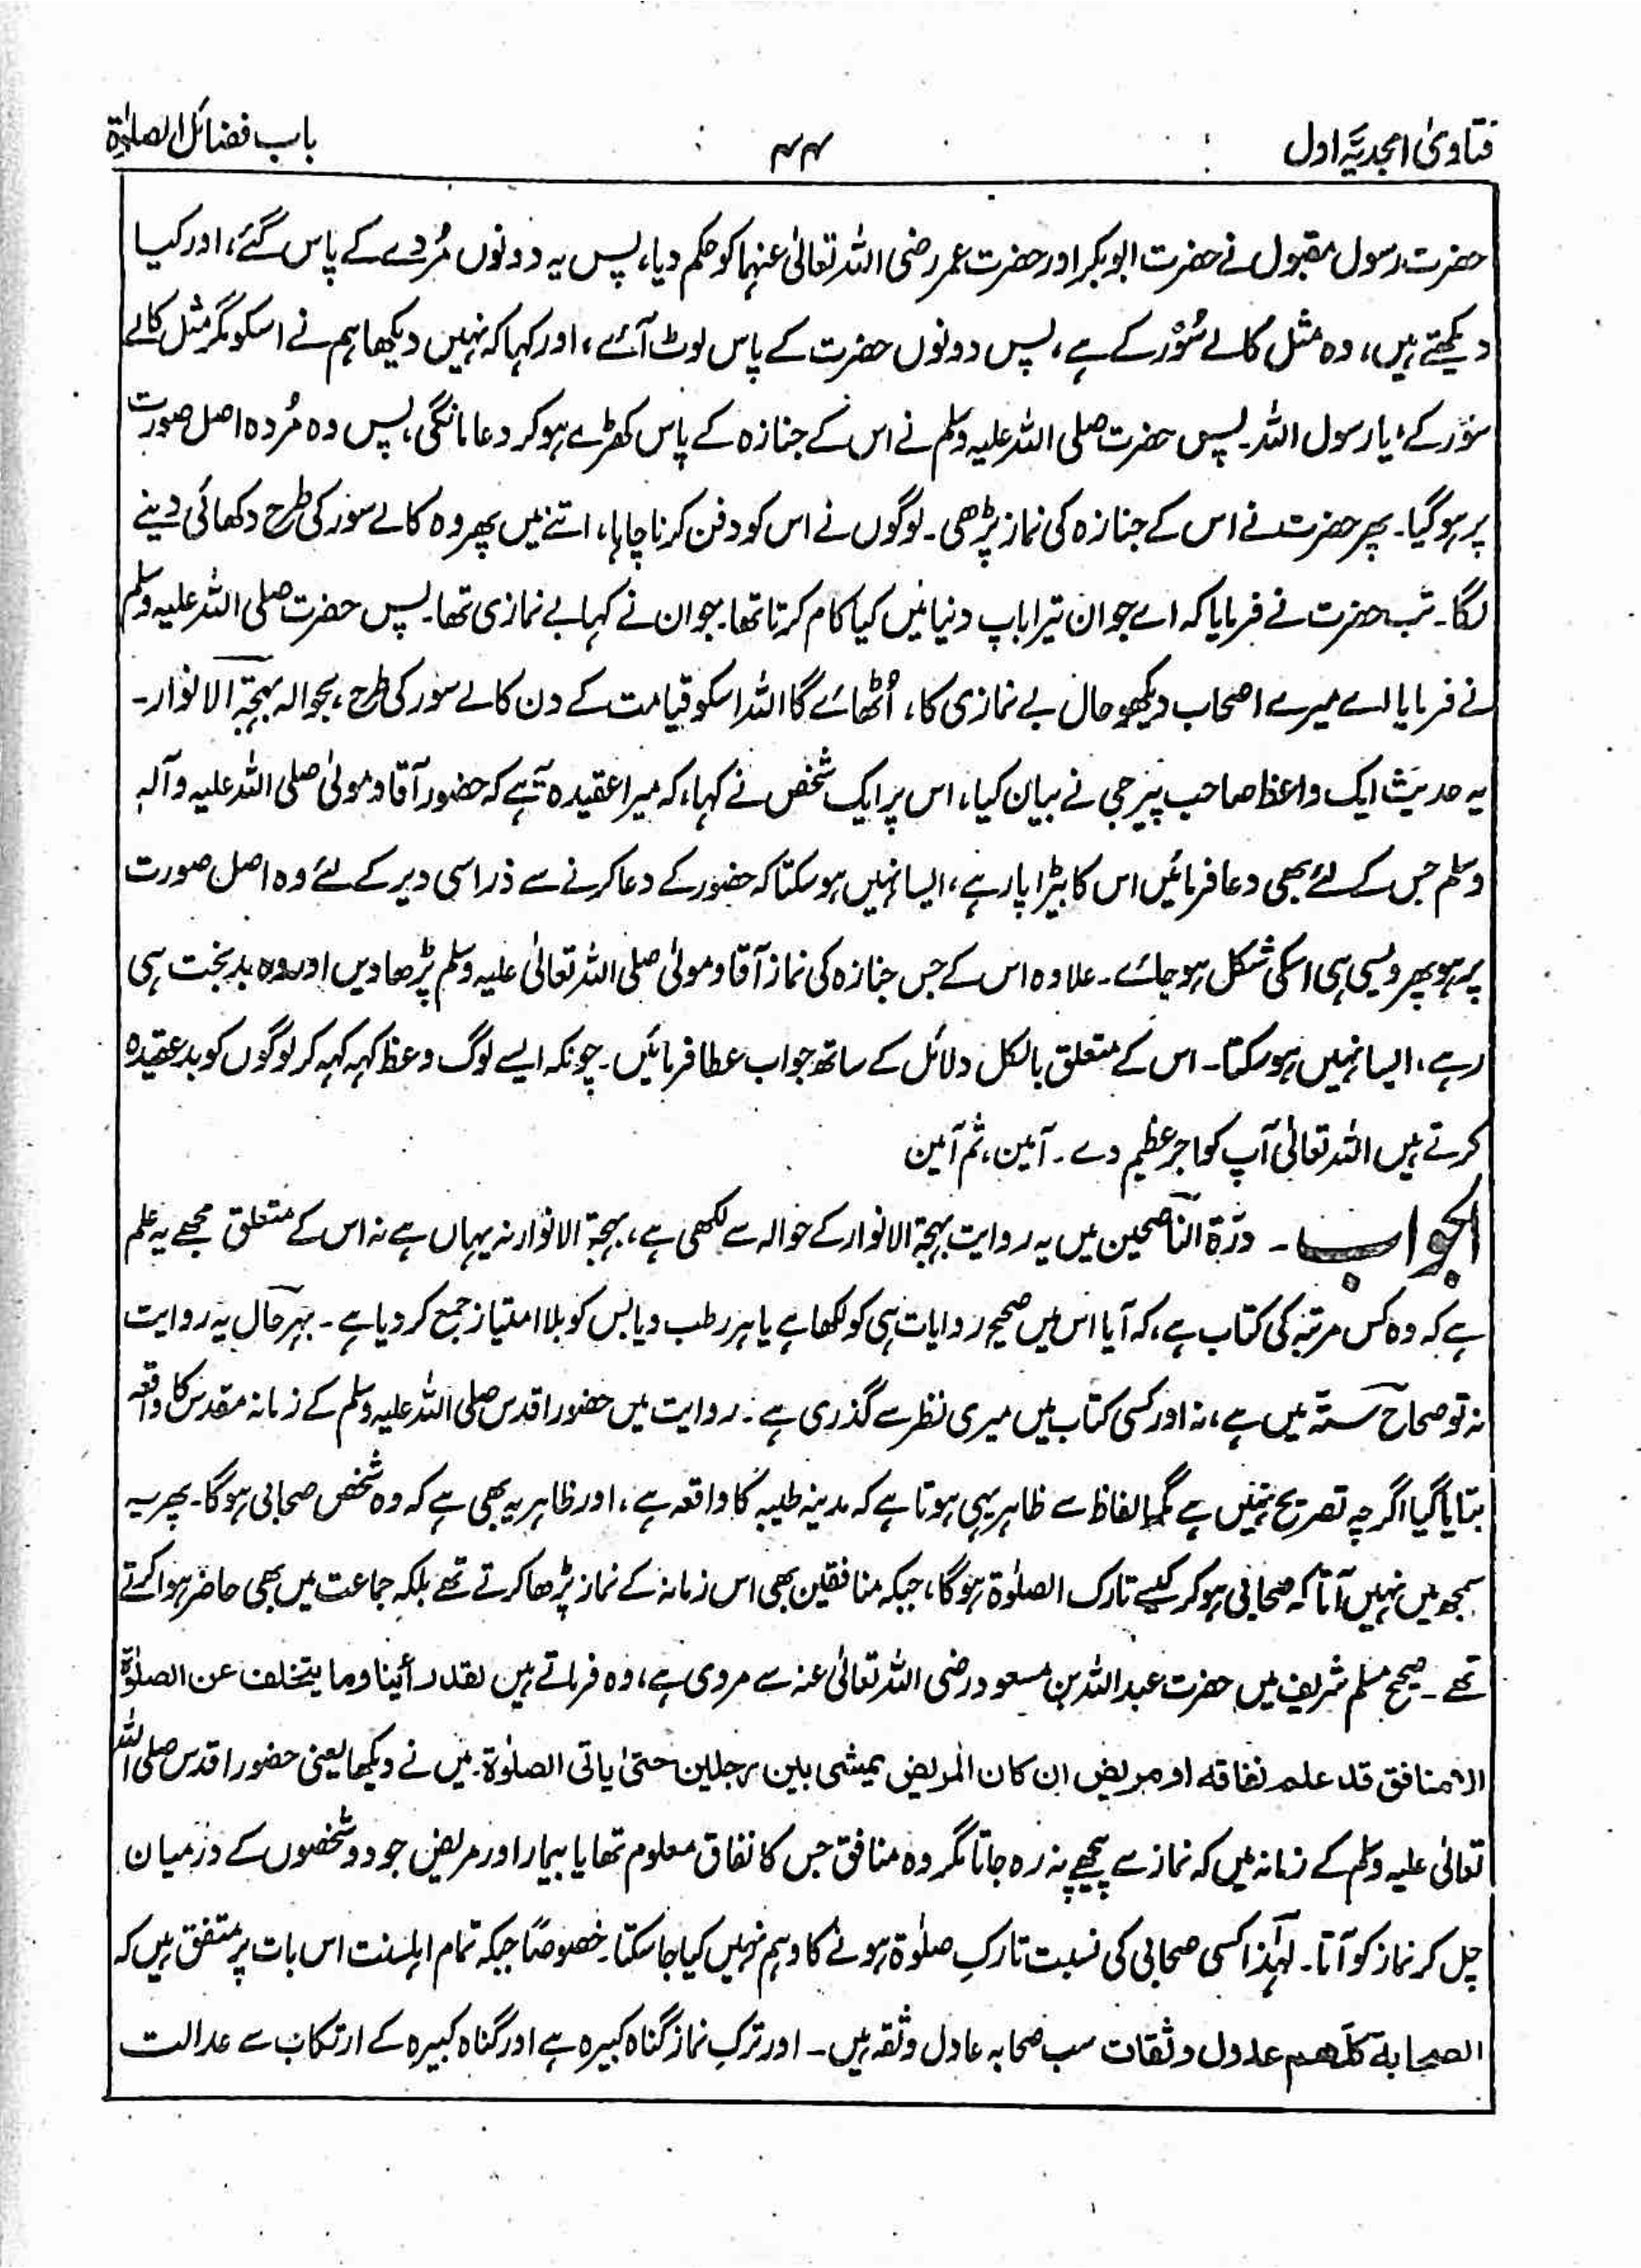 فتاویٰ امجدیہ اول
۴۴
باب فضائل الصلوٰۃ
حضرت رسول مقبول نے حضرت ابوبکر اور حضرت عمر رضی اللہ تعالیٰ عنہما کو حکم دیا، پس یہ دونوں مُردے کے پاس گئے، اور کیا
دیکھتے ہیں، وہ مثل کالے سُوْر کے ہے، پس دونوں حضرت کے پاس لوٹ آئے، اور کہا کہ نہیں دیکھا ہم نے اسکو مگر مثل کالے
سوْر کے، یا رسول اللہ۔ پس حضرت صلی اللہ علیہ وسلم نے اس کے جنازہ کے پاس کھڑے ہوکر دعا مانگی، پس وہ مُردہ اصل صورت
پر ہوگیا۔ پھر حضرت نے اس کے جنازہ کی نماز پڑھی۔ لوگوں نے اس کو دفن کرنا چاہا، اتنے میں پھر وہ کالے سور کی طرح دکھائی دینے
لگا۔ تب حضرت نے فرمایا کہ اے جوان تیرا باپ دنیا میں کیا کام کرتا تھا۔ جوان نے کہا بے نمازی تھا۔ پس حضرت صلی اللہ علیہ وسلم
نے فرمایا اے میرے اصحاب دیکھو حال بے نمازی کا، اُٹھائے گا اللہ اسکو قیامت کے دن کالے سور کی طرح، بحوالہ بہجۃ الانوار۔
یہ حدیث ایک واعظ صاحب پیرجی نے بیان کیا، اس پر ایک شخص نے کہا، کہ میرا عقیدہ یہ ہے کہ حضور آقا و مولیٰ صلی اللہ علیہ وآلہ
وسلم جس کے لئے بھی دعا فرمائیں اس کا بیڑا پار ہے، ایسا نہیں ہوسکتا کہ حضور کے دعا کرنے سے ذرا سی دیر کے لئے وہ اصل صورت
پر ہو پھر ویسی ہی اسکی شکل ہوجائے۔ علاوہ اس کے جس جنازہ کی نماز آقا و مولیٰ صلی اللہ تعالیٰ علیہ وسلم پڑھادیں اور وہ بدبخت ہی
رہے، ایسا نہیں ہوسکتا۔ اس کے متعلق بالکل دلائل کے ساتھ جواب عطا فرمائیں۔ چونکہ ایسے لوگ وعظ کہہ کہہ کر لوگوں کو بدعقیدہ
کرتے ہیں اللہ تعالیٰ آپ کو اجر عظیم دے۔ آمین، ثم آمین
الجواب ۔ درّۃ الناصحین میں یہ روایت بہجۃ الانوار کے حوالہ سے لکھی ہے، بہجۃ الانوار نہ یہاں ہے نہ اس کے متعلق مجھے یہ علم
ہے کہ وہ کس مرتبہ کی کتاب ہے، کہ آیا اس میں صحیح روایات ہی کو لکھا ہے یا ہر رطب و یابس کو بلا امتیاز جمع کردیا ہے۔ بہرحال یہ روایت
نہ تو صحاح ستہ میں ہے، نہ اور کسی کتاب میں میری نظر سے گذری ہے۔ روایت میں حضور اقدس صلی اللہ علیہ وسلم کے زمانہ مقدس کا واقعہ
بتایا گیا اگرچہ تصریح نہیں ہے مگر الفاظ سے ظاہر یہی ہوتا ہے کہ مدینہ طیبہ کا واقعہ ہے، اور ظاہر یہ بھی ہے کہ وہ شخص صحابی ہوگا۔ پھر یہ
سمجھ میں نہیں آتا کہ صحابی ہوکر کیسے تارک الصلوٰۃ ہوگا، جبکہ منافقین بھی اس زمانہ کے نماز پڑھا کرتے تھے بلکہ جماعت میں بھی حاضر ہوا کرتے
تھے۔ صحیح مسلم شریف میں حضرت عبداللہ بن مسعود رضی اللہ تعالیٰ عنہ سے مروی ہے، وہ فرماتے ہیں لقد رأینا وما یتخلف عن الصلوٰۃ
الا منافق قد علم نفاقه او مریض ان کان المریض یمشی بین رجلین حتیٰ یاتی الصلوٰۃ۔ میں نے دیکھا یعنی حضور اقدس صلی اللہ
تعالیٰ علیہ وسلم کے زمانہ میں کہ نماز سے پیچھے نہ رہ جاتا مگر وہ منافق جس کا نفاق معلوم تھا یا بیمار اور مریض جو دو شخصوں کے درمیان
چل کر نماز کو آتا۔ لہٰذا کسی صحابی کی نسبت تارکِ صلوٰۃ ہونے کا وہم نہیں کیا جاسکتا۔ خصوصاً جبکہ تمام اہلسنت اس بات پر متفق ہیں کہ
الصحابة کلهم عدول و ثقات سب صحابہ عادل و ثقہ ہیں۔ اور ترکِ نماز گناہ کبیرہ ہے اور گناہ کبیرہ کے ارتکاب سے عدالت